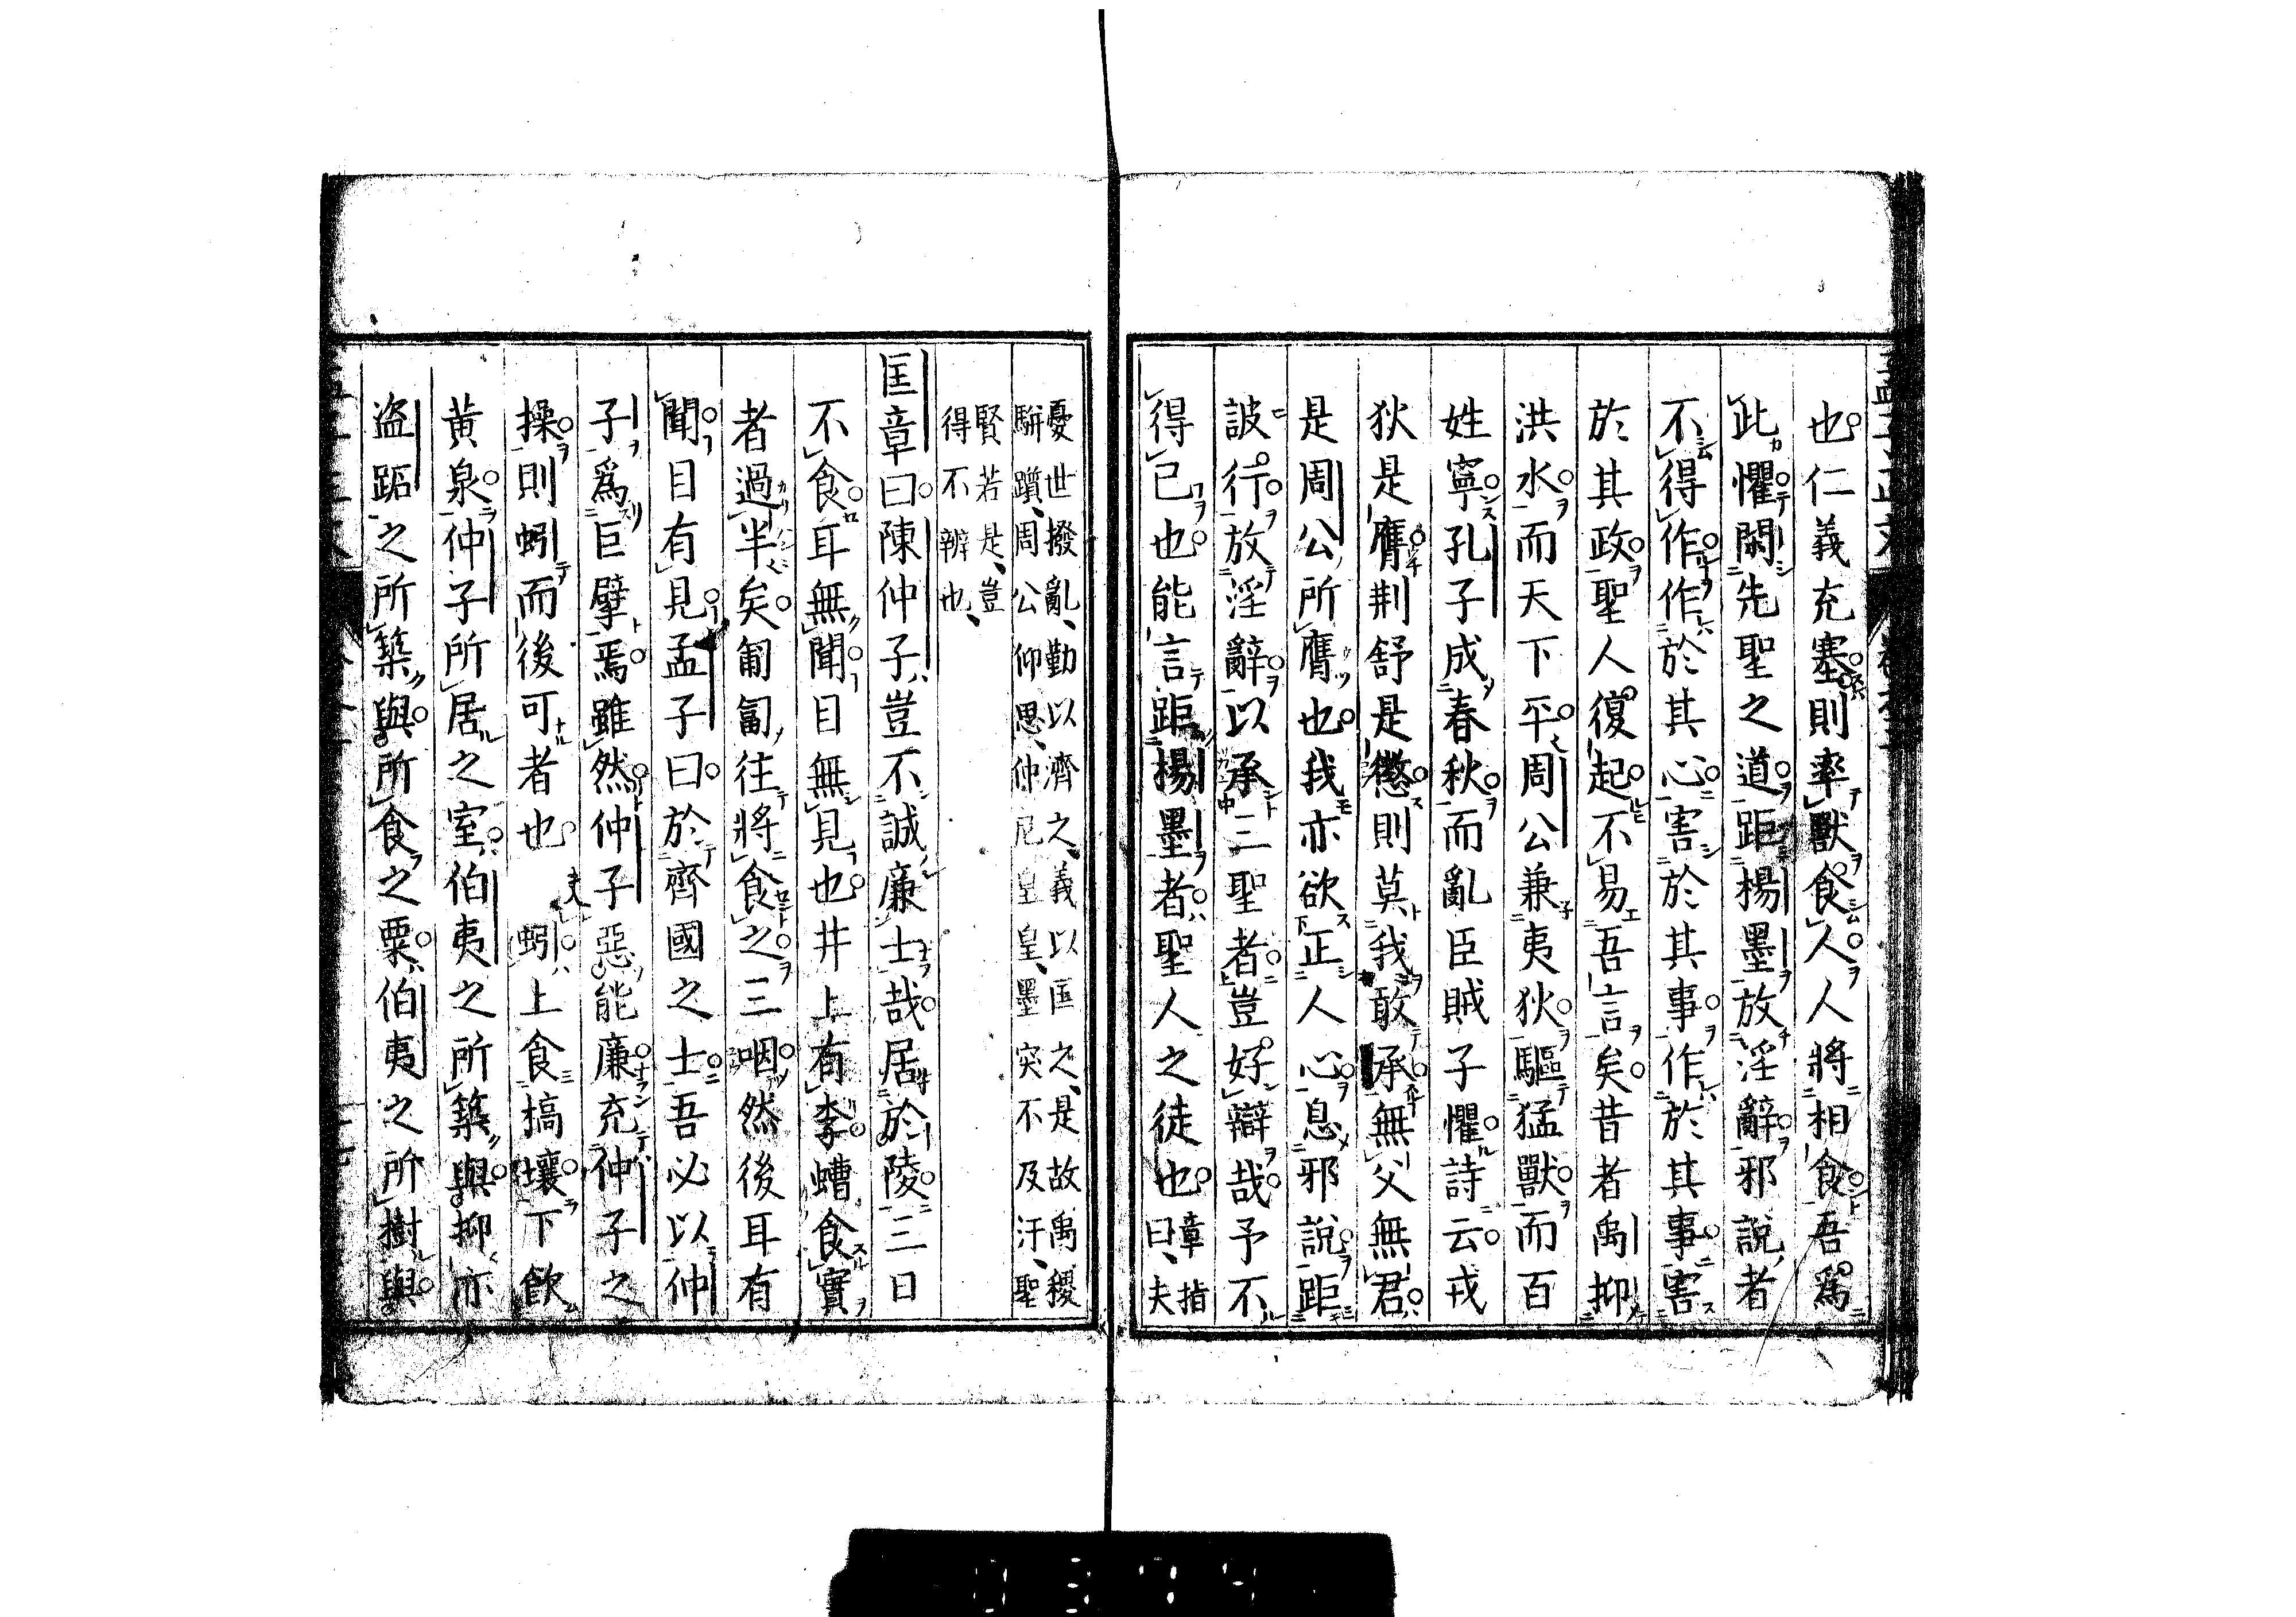 也仁義充塞則率獸食人人將相食吾爲
此懼閑先聖之道距楊墨放淫辭邪說者
不得作作於其心害於其事作於其事害
於其政聖人復起不易吾言矣昔者禹抑
洪水而天下平周公兼夷狄驅猛獸而百
姓寧孔子成春秋而亂臣賊子懼詩云戎
狄是膺荆舒是懲則莫我敢承無父無君
是周公所膺也我亦欲正人心息邪說距
詖行放淫辭以承三聖者豈好辯哉予不
得已也能言距楊墨者聖人之徒也章指
曰夫
憂世撥亂、勤以濟之、義以匡之、是故禹稷
駢躓、周公仰思、仲尼皇皇、墨突不及汙、聖
賢若是、豈
得不辨也、
匡章曰陳仲子豈不誠廉士哉居於陵三日
不食耳無聞目無見也井上有李螬食實
者過半矣匍匐往將食之三咽然後耳有
聞目有見孟子曰於齊國之士吾必以仲
子爲巨擘焉雖然仲子惡能廉充仲子之
操則蚓而後可者也夫蚓上食槁壤下飲
黃泉仲子所居之室伯夷之所築與抑亦
盜跖之所築與所食之粟伯夷之所樹與